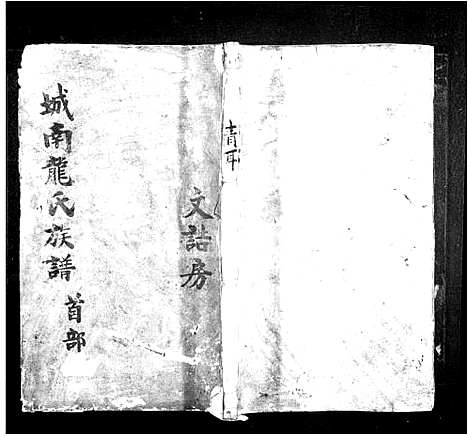 城南龍氏族譜
首部
文詁房